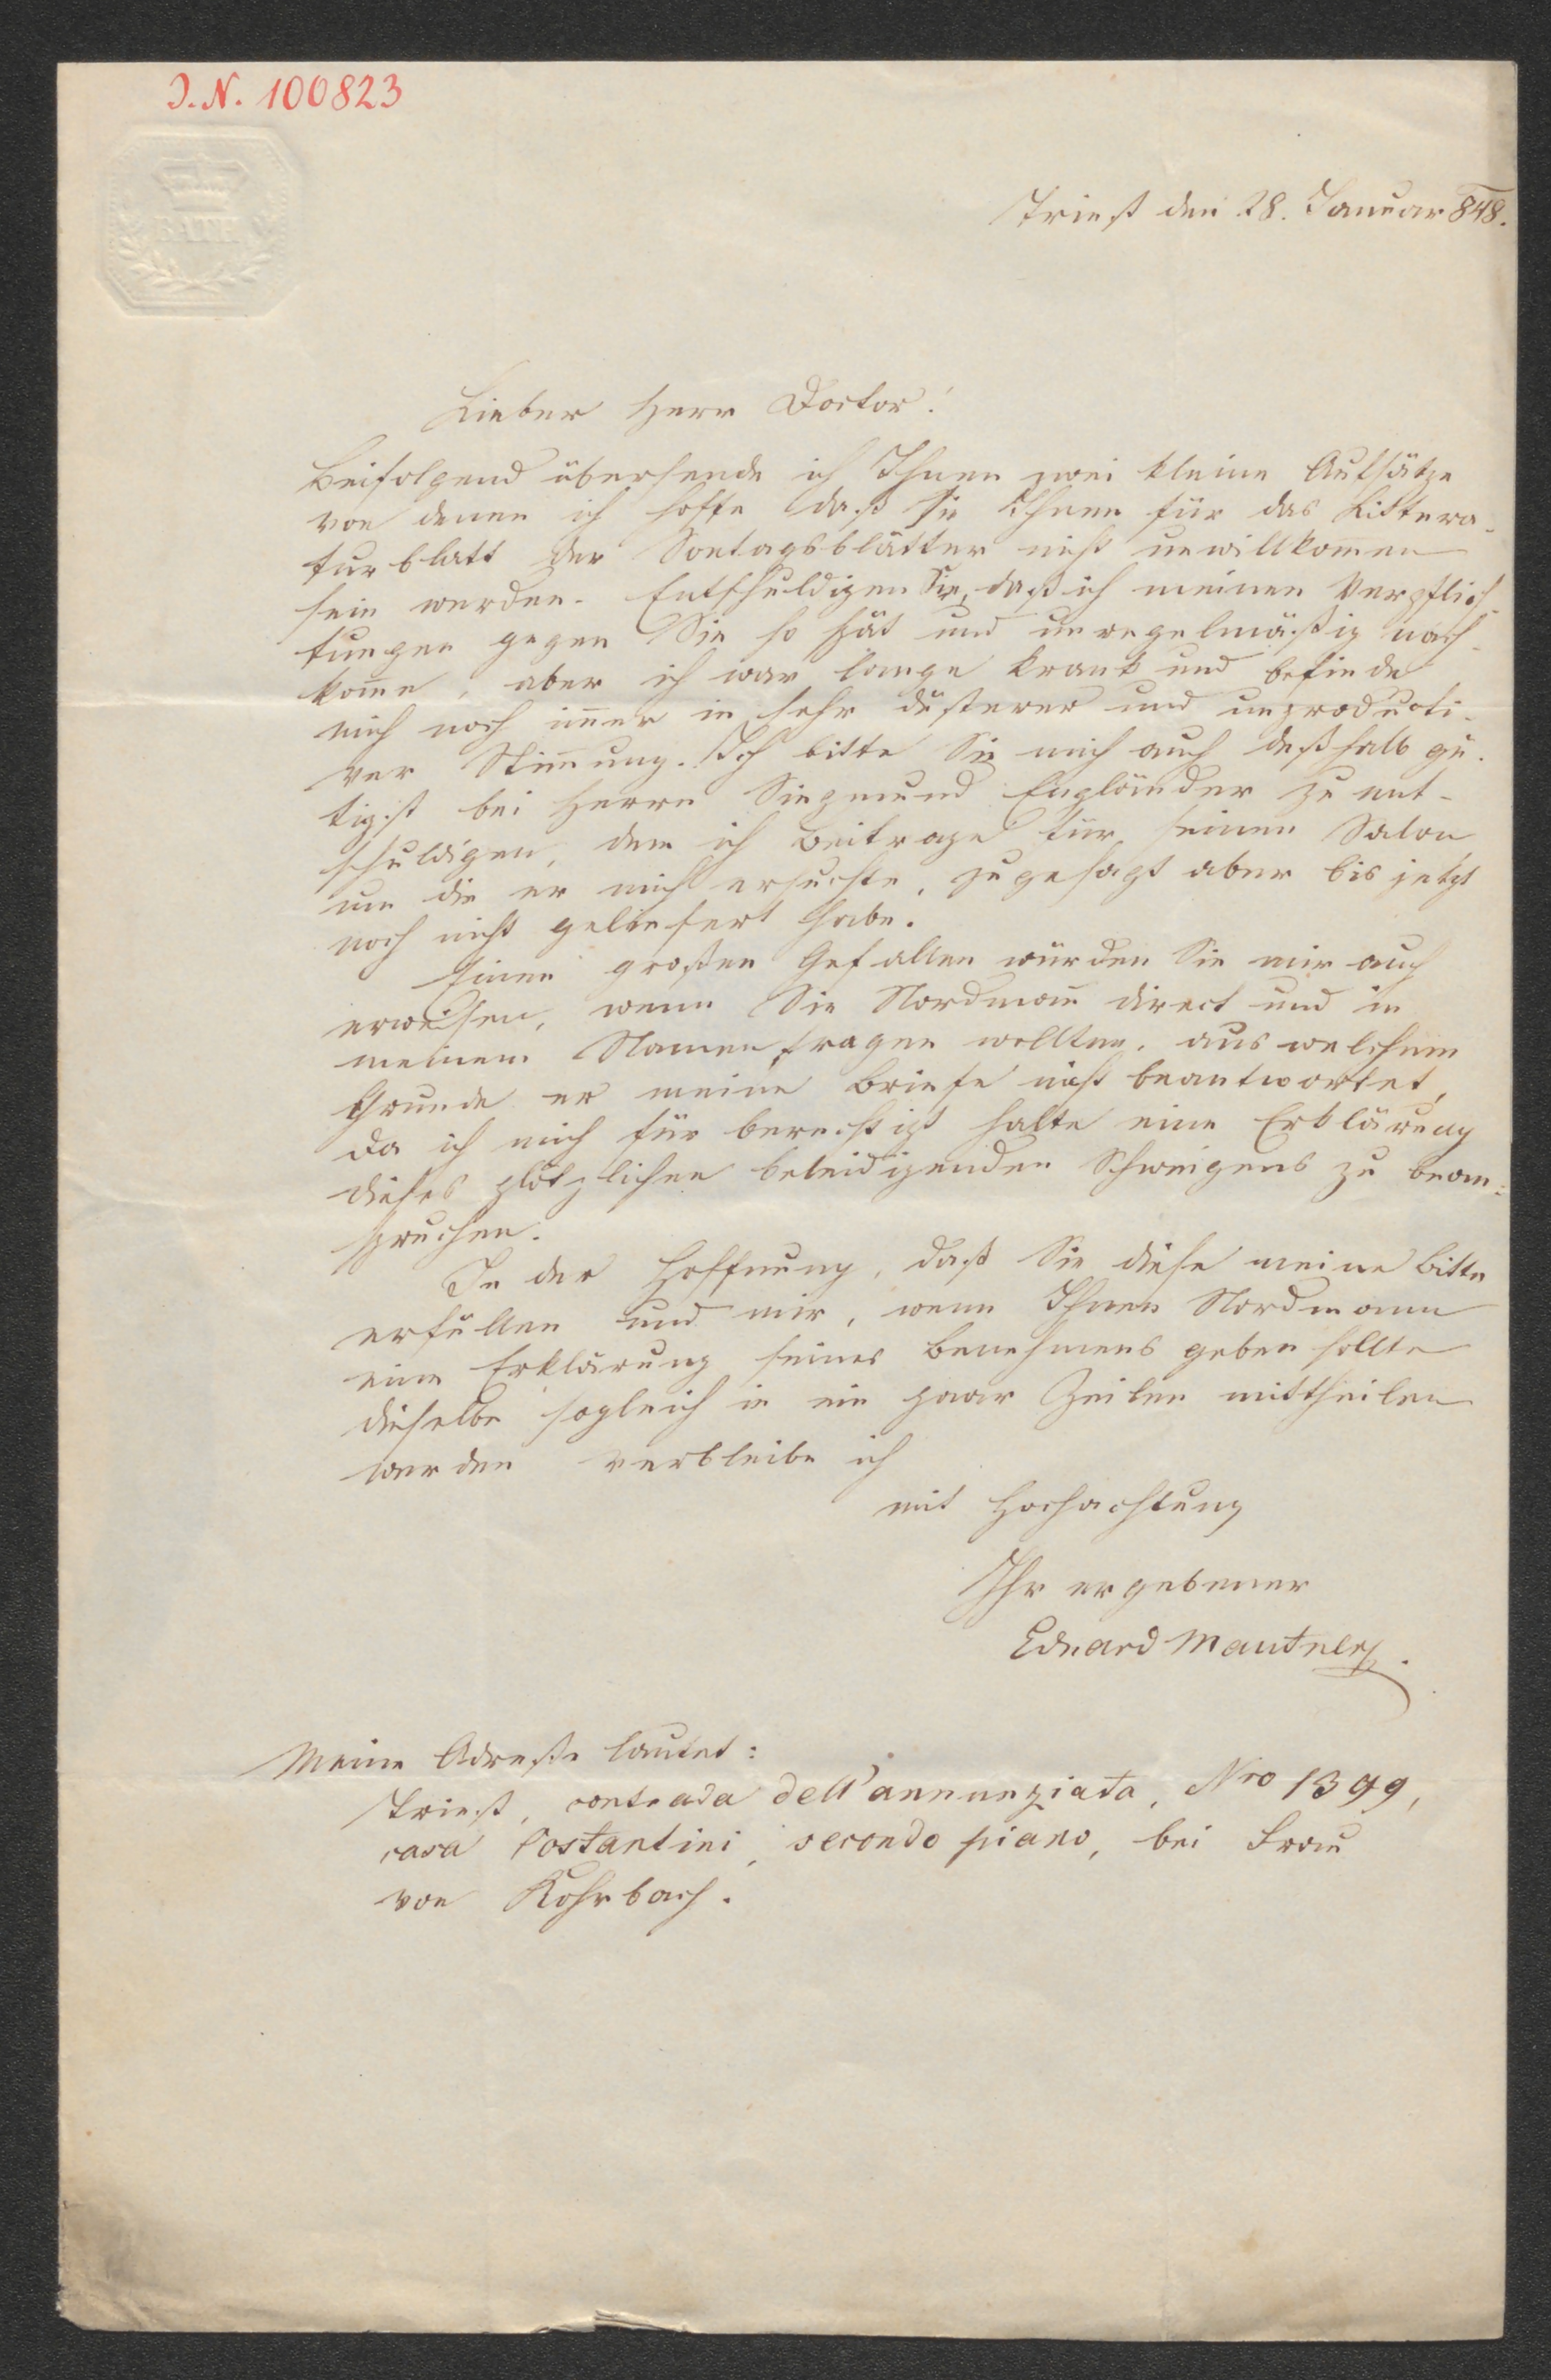 J. N. 100823
BATH
Triest den 28. Januar 848.
Lieber Herr Doctor!
Beifolgend übersende ich Ihnen zwei kleine Aufsätze
von denen ich hoffe daß sie Ihnen für das Littera-
turblatt der Sontagsblätter nicht unwillkom̄en
sein werden. Entschuldigen Sie, daß ich meinen Verpflich-
tungen gegen Sie so spät und unregelmäßig nach-
kom̄e, aber ich war lange krank und befinde
mich noch im̄er in sehr düsterer und unproducti-
ver Stim̄ung. Ich bitte Sie mich auch deßhalb gü-
tigst bei Herrn Siegmund Engländer zu ent-
schuldigen, dem ich Beitrage für seinen Salon
um die er mich ersuchte, zugesagt aber bis jetzt
noch nicht geliefert habe.
Einen großen Gefallen würden Sie mir auch
erweisen, wenn Sie Nordman̄ direct und in
meinem Namen fragen wollten, aus welchem
Grunde er meine Briefe nicht beantwortet,
da ich mich für berechtigt halte eine Erklärung
dieses plötzlichen beleidigenden Schweigens zu bean-
spruchen.
In der Hoffnung, daß Sie diese meine Bitte
erfüllen und mir, wenn Ihnen Nordmann
eine Erklärung seines Benehmens geben sollte
dieselbe sogleich in ein paar Zeilen mittheilen
werden verbleibe ich
mit Hochachtung
Ihr ergebener
Eduard Mautner.
Meine Adresse lautet:
Triest, contrada dell'annunziata, Nro 1399,
casa Costantini, secondo piano, bei Frau
von Rohrbach.